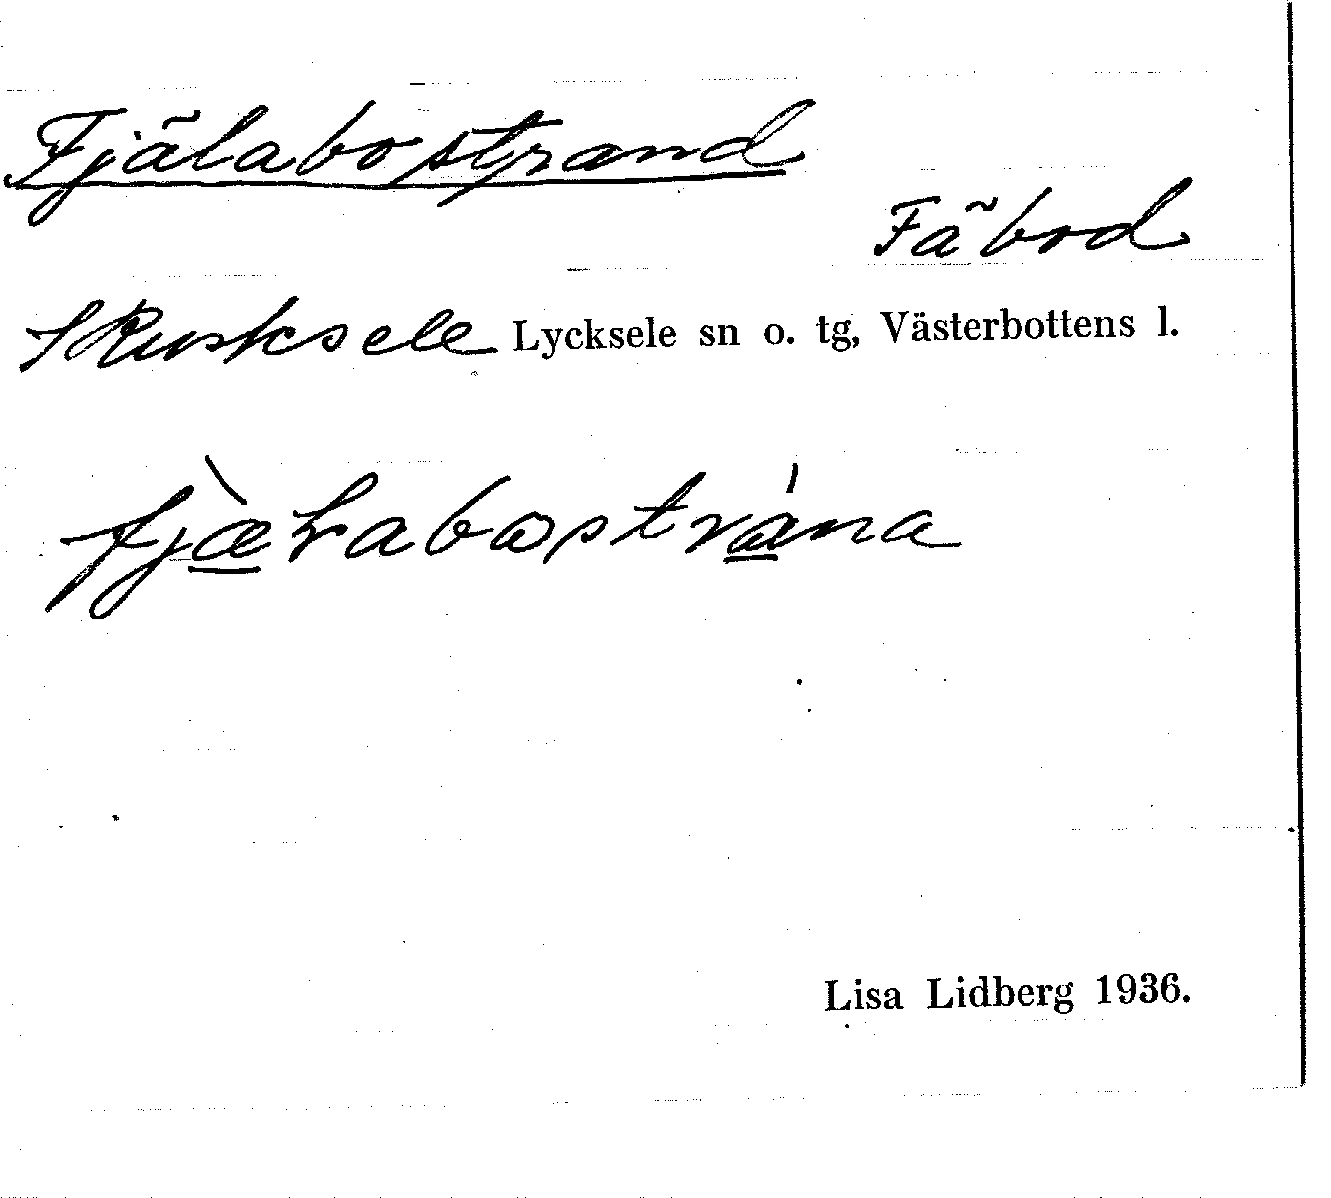 Fjälabostrand
Fäbod
Rusksele Lycksele sn o. tg, Västerbottens l.
Lisa Lidberg 1936.